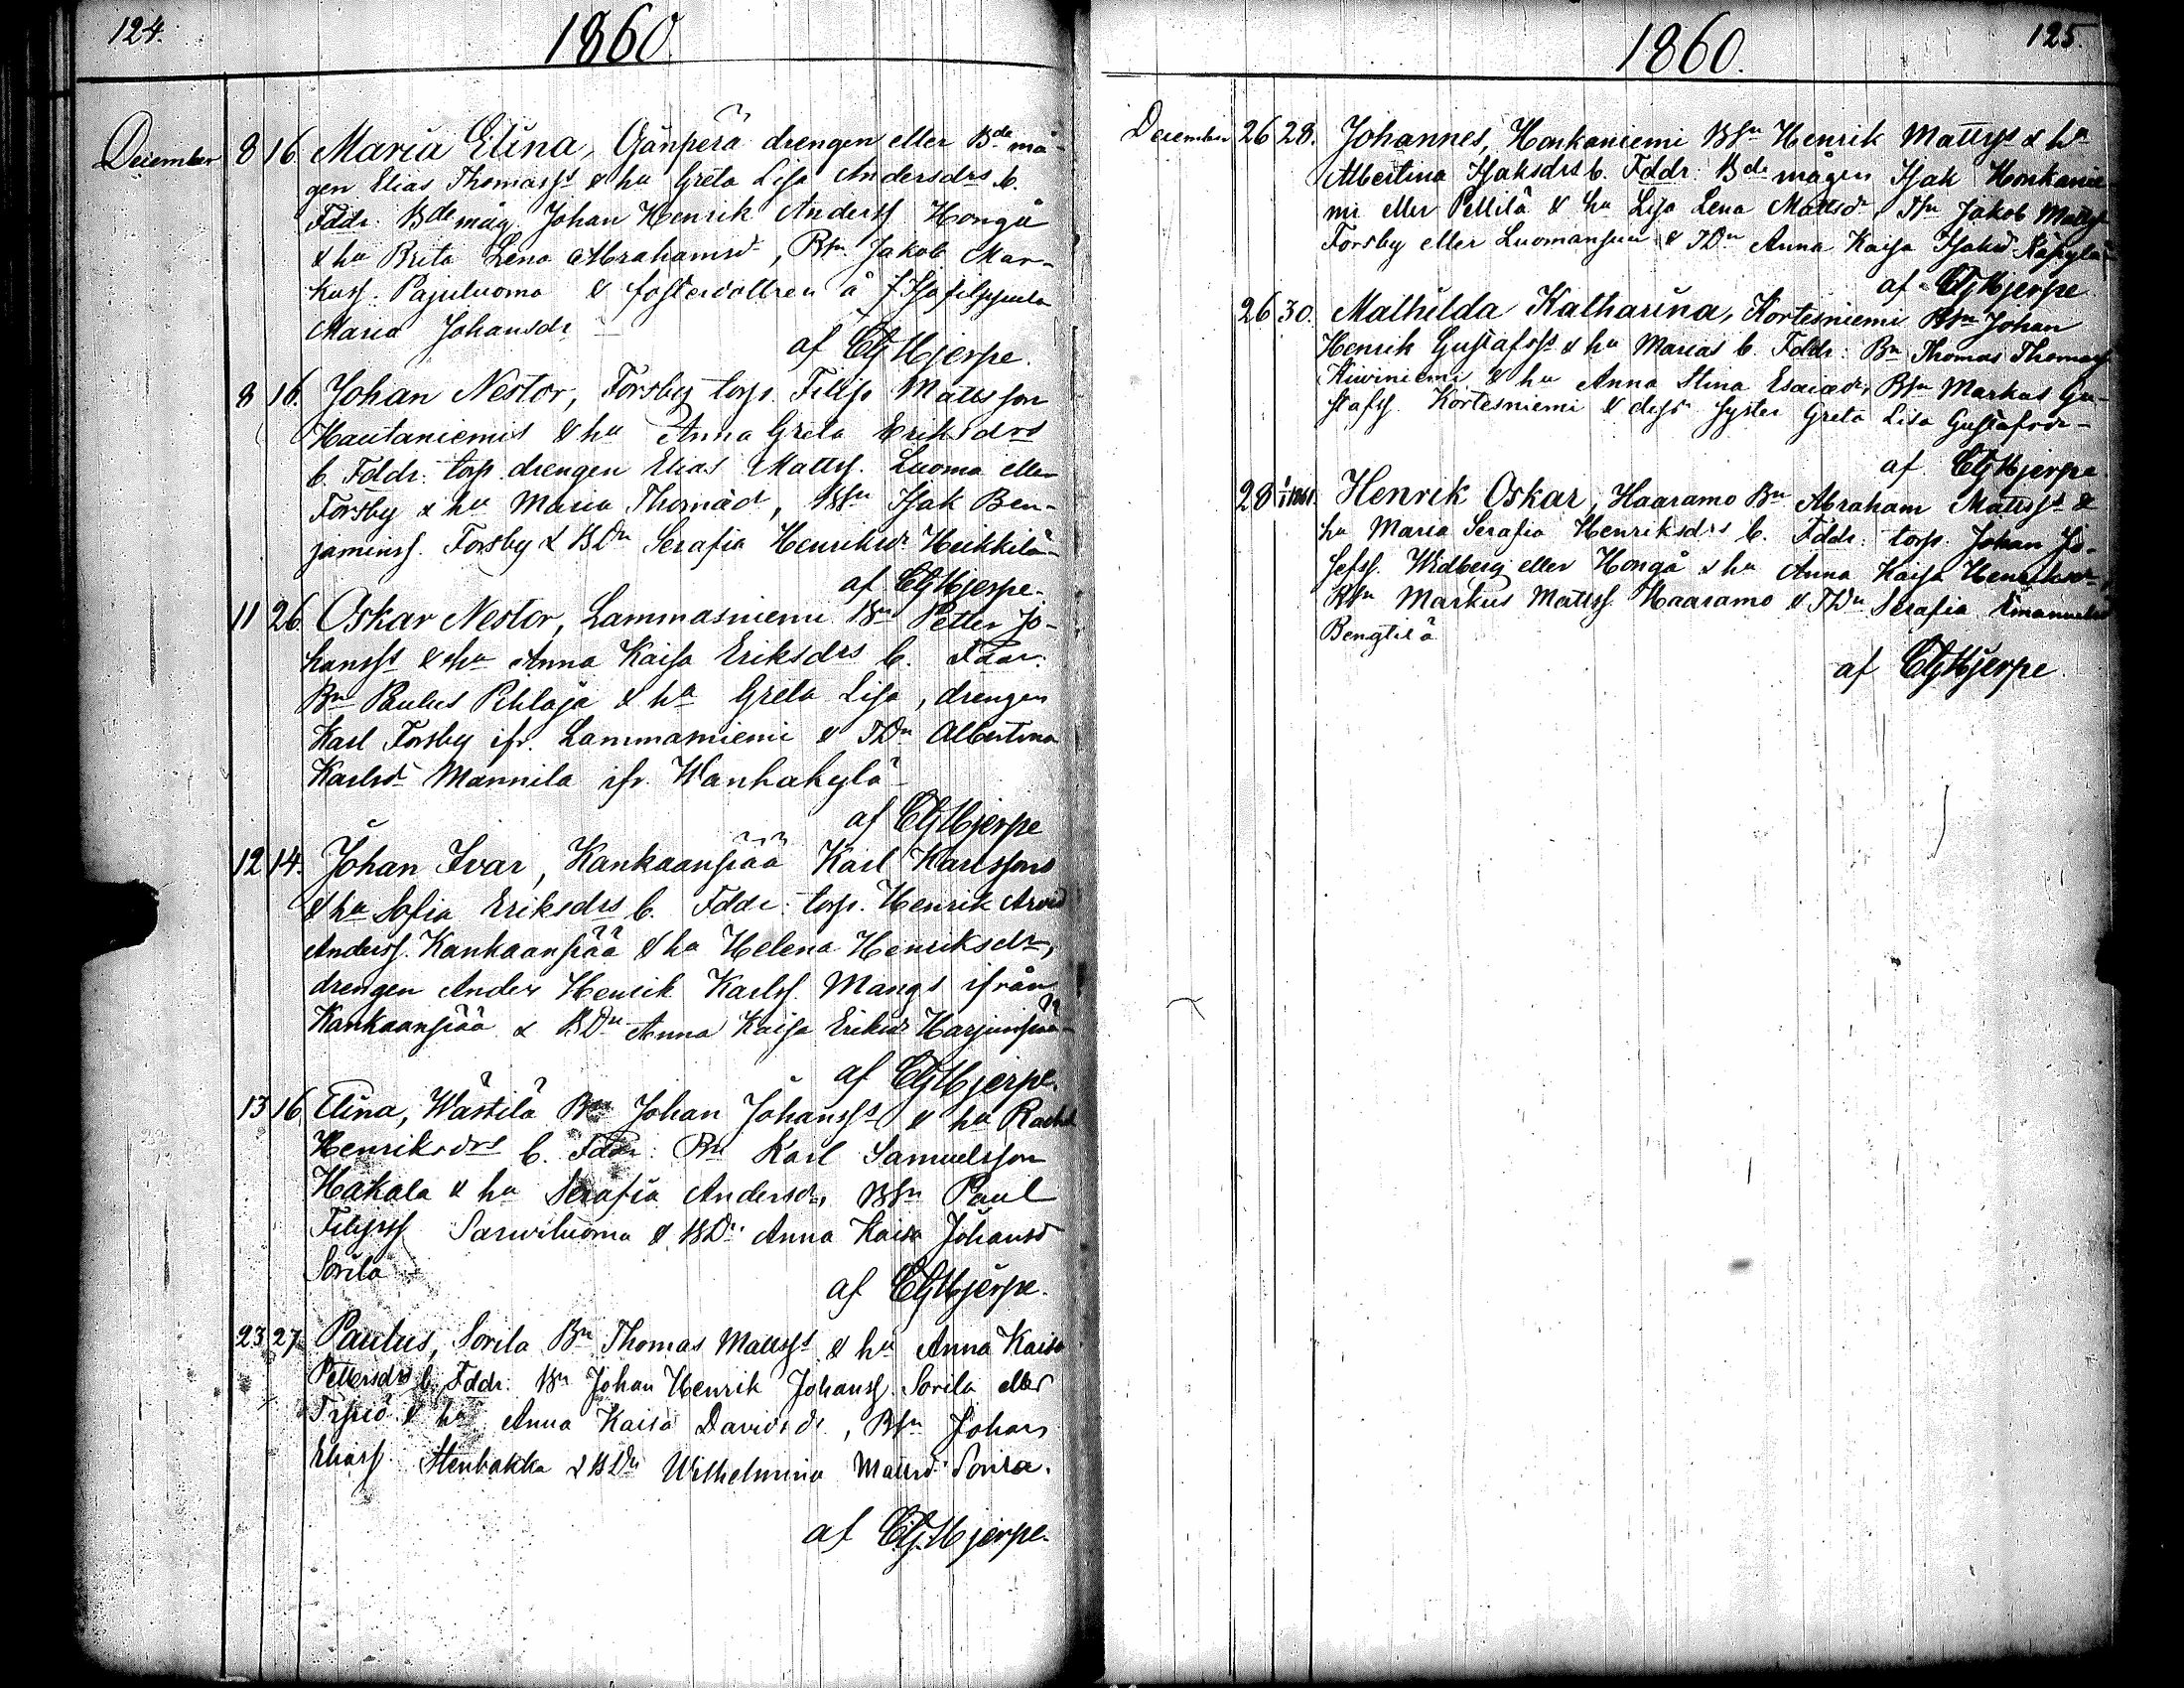 124.
1860.
December 8 16. Maria Elina, Gånperä drengen eller Bde må-
gen Elias Thomass s & hu Greta Lisa Andersdrs b.
Fddr. Bde måg Johan Henrik Anderss Hongå
& hu Brita Lena Abrahamsdr, Bsn Jakob Mar-
kuss. Pajuluoma & fosterdottren å
Maria Johansdr
af CGHjerpe.
8 16. Johan Nestor, Forsby torp. Filip Mattsson
Hautaniemis & hu Anna Greta Eriksdrs
b. Fddr. torp. drengen Elias Matts. Luoma eller
Forsby & hu Maria Thomadr, Bsn Isak Ben-
jamins. Forsby & BDn Serafia Henriksdr Heikkilä
af CGHjerpe.
11 26. Oskar Nestor, Lammasniemi Bn Petter Jo-
hanss s & hu Anna Kaisa Eriksdrs b. Fddr.
Bn Paulus Pihlaja & hu Greta Lisa, drengen
Karl Forsby ifr. Lammasniemi & TDn Albertina
Karlsdr Mannila ifr. Wanhakylä
af CGHjerpe
12 14. Johan Ivar, Kankaanpää Karl Karlssons
& hu Sofia Eriksdrs b. Fddr. torp. Henrik Arvid
Anderss. Kankaanpää & hu Helena Henriksdr,
drengen Anders Henrik Karlss. Mangs ifrån
Kankaanpää & BDn Anna Kaisa Eriksdr Harjunpää
af CGHjerpe.
13 16. Elina, Wästilä Bn Johan Johanss s & hu Rachel
Henriksdrs b. Fddr: Bn Karl Samuelsson
Hakala & hu Serafia Andersdr, Bsn Paul
Filipss Sarwiluoma & BDn Anna Kaisa Johansd
Sorila
af CGHjerpe.
23 27. Paulus, Sorila Bn Thomas Mattss s & hu Anna Kaisa
Pettersdrs b. Fddr. Bn Johan Henrik Johanss. Sorila eller
& hu Anna Kaisa Davidsdr, Bsn Johan
Eliass. Stenbakka & BDn Wilhelmina Mattsd. Sorila.
af CGHjerpe.
1860.
125.
December 26 28. Johannes, Honkaniemi Bsn Henrik Mattss s & hu
Albertina Isaksdrs b. Fddr: Bde mågen Isak Honkanie
mi eller Pellilä & hu Lisa Lena Mattsdr, Bsn Jakob Mattss
Forsby eller Luomanpuu & TDn Anna Kaisa Isaksd Käpylä
af CGHjerpe
26 30. Mathilda Katharina, Kortesniemi Bsn Johan
Henrik Gustafss s & hu Marias b. Fddr: Bn Thomas Thomass
Kiwiniemi & hu Anna Stina Esaiædr, Bsn Markus Gu-
stafss. Kortesniemi & dess syster Greta Lisa Gustafsdr
af CGHjerpe
28 1/1 1861. Henrik Oskar, Haaramo Bn Abraham Mattss s &
hu Maria Serafia Henriksdrs b. Fddr: torp. Johan Jo-
sefss. Widberg eller Hongå & hu Anna Kaisa Henriksdr,
Bsn Markus Mattss. Haaramo & TDn Serafia Emanuelsd
Bengtilä
af CGHjerpe.